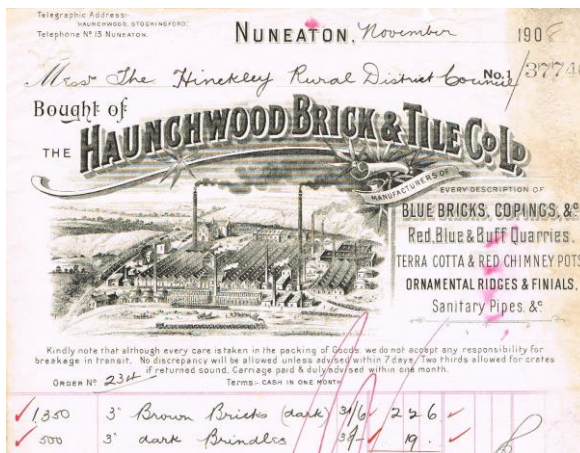 Telegraphic Address:-
"HAUNCHWOOD, STOCKINGFORD."
Telephone Nº 13 NUNEATON.
NUNEATON, November 1908
Messrs The Hinckley Rural District Council No. 1/37740
Bought of
THE HAUNCHWOOD BRICK & TILE Cº. Lº.
MANUFACTURERS OF
EVERY DESCRIPTION OF
BLUE BRICKS, COPINGS, &c
Red, Blue & Buff Quarries.
TERRA COTTA & RED CHIMNEY POTS
ORNAMENTAL RIDGES & FINIALS,
Sanitary Pipes. &c
Kindly note that although every care is taken in the packing of Goods. we do not accept any responsibility for
breakage in transit. No discrepancy will be allowed unless advised within 7 days, Two thirds allowed for crates
if returned sound. Carriage paid & duly advised within one month.
ORDER Nº 234 Terms:- CASH IN ONE MONTH
1,350 3" Brown Bricks (dark) 31/6 2 2 6
500 3" dark Brindles 38/- 19.